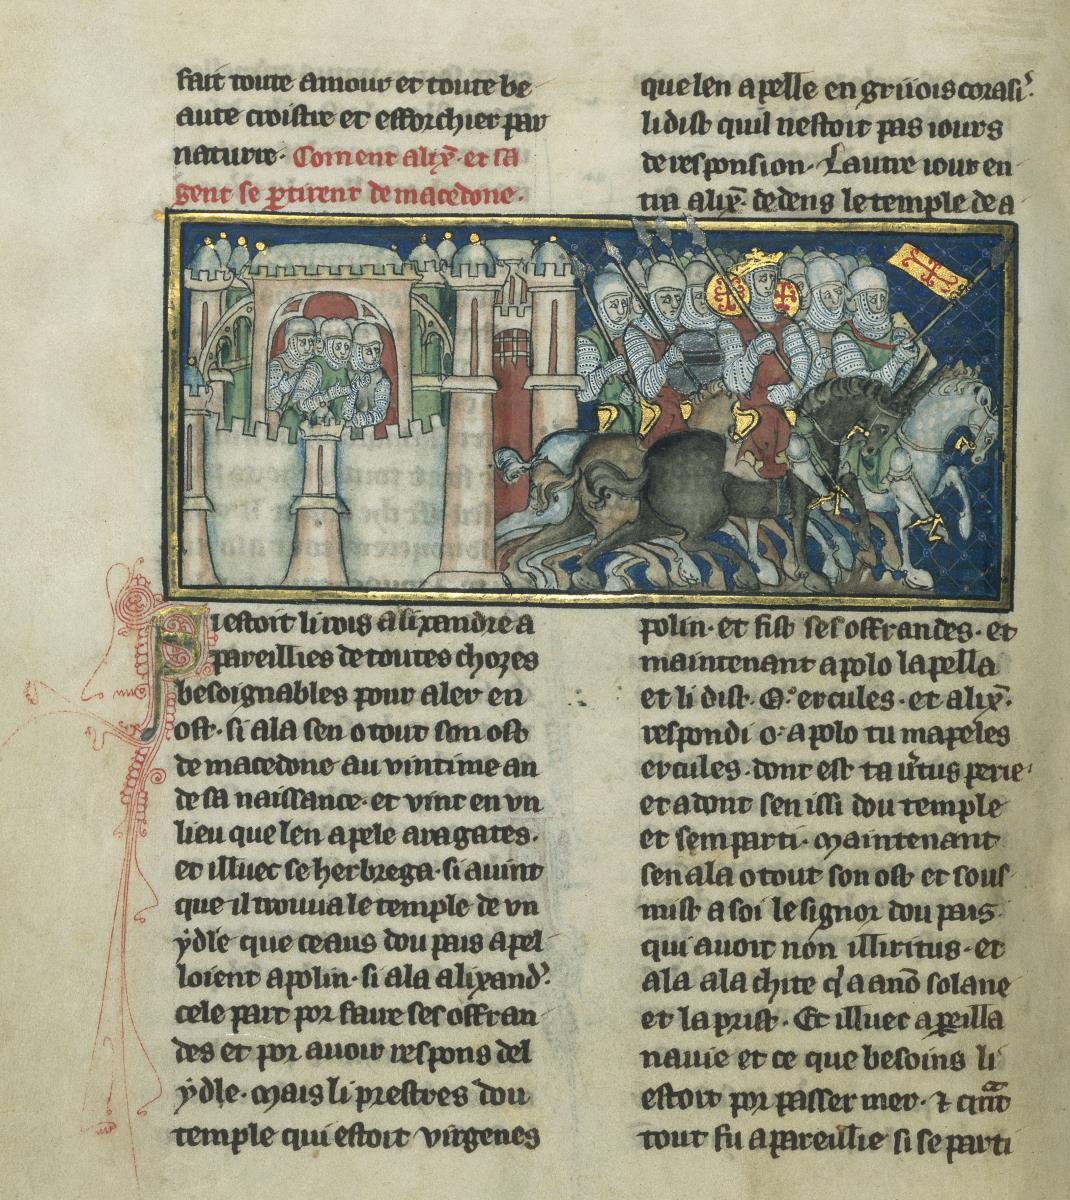 fait toute amour et toute be
aute croistre et efforchier par
nature. Coment alix̄. et sa
gent se ꝑtirent de macedone.
Si estoit li rois alixandre a
pareillies de toutes chozes
besoignables pour aler en
ost. si ala sen o tout son ost
de macedone au vintime an
de sa naissance. et vint en vn
lieu que len apele aragates.
et illuec se herbrega. si auint
que il trouua le temple de vn
ydle que ceaus dou pais apel
loient apolin. si ala alixand᾽.
cele part por faire ses offran
des et por auoir respons del
ydle. Mais li prestres dou
temple qui estoit virgenes
que len apelle en griiois corasi᾽.
li dist quil nestoit pas iours
de responsion. Lautre iour en
tra alix̄. dedens le temple de a
polin. et fist ses offrandes. et
maintenant apolo lapella
et li dist. O. ercules. et alix̄.
respondi o. apolo tu mapeles
ercules. dont est ta u᾽tus perie.
et adont sen issi dou temple
et semparti. Maintenant
sen ala o tout son ost et sous
mist a soi le signor dou pais
qui auoit non illiritus. et
ala a la chite q᾽ a a nō solane
et la prist. Et illuec apꝑeilla
nauie et ce que besoins li
estoit por passer mer. ⁊ cͣnt
tout fu apareillie si se parti